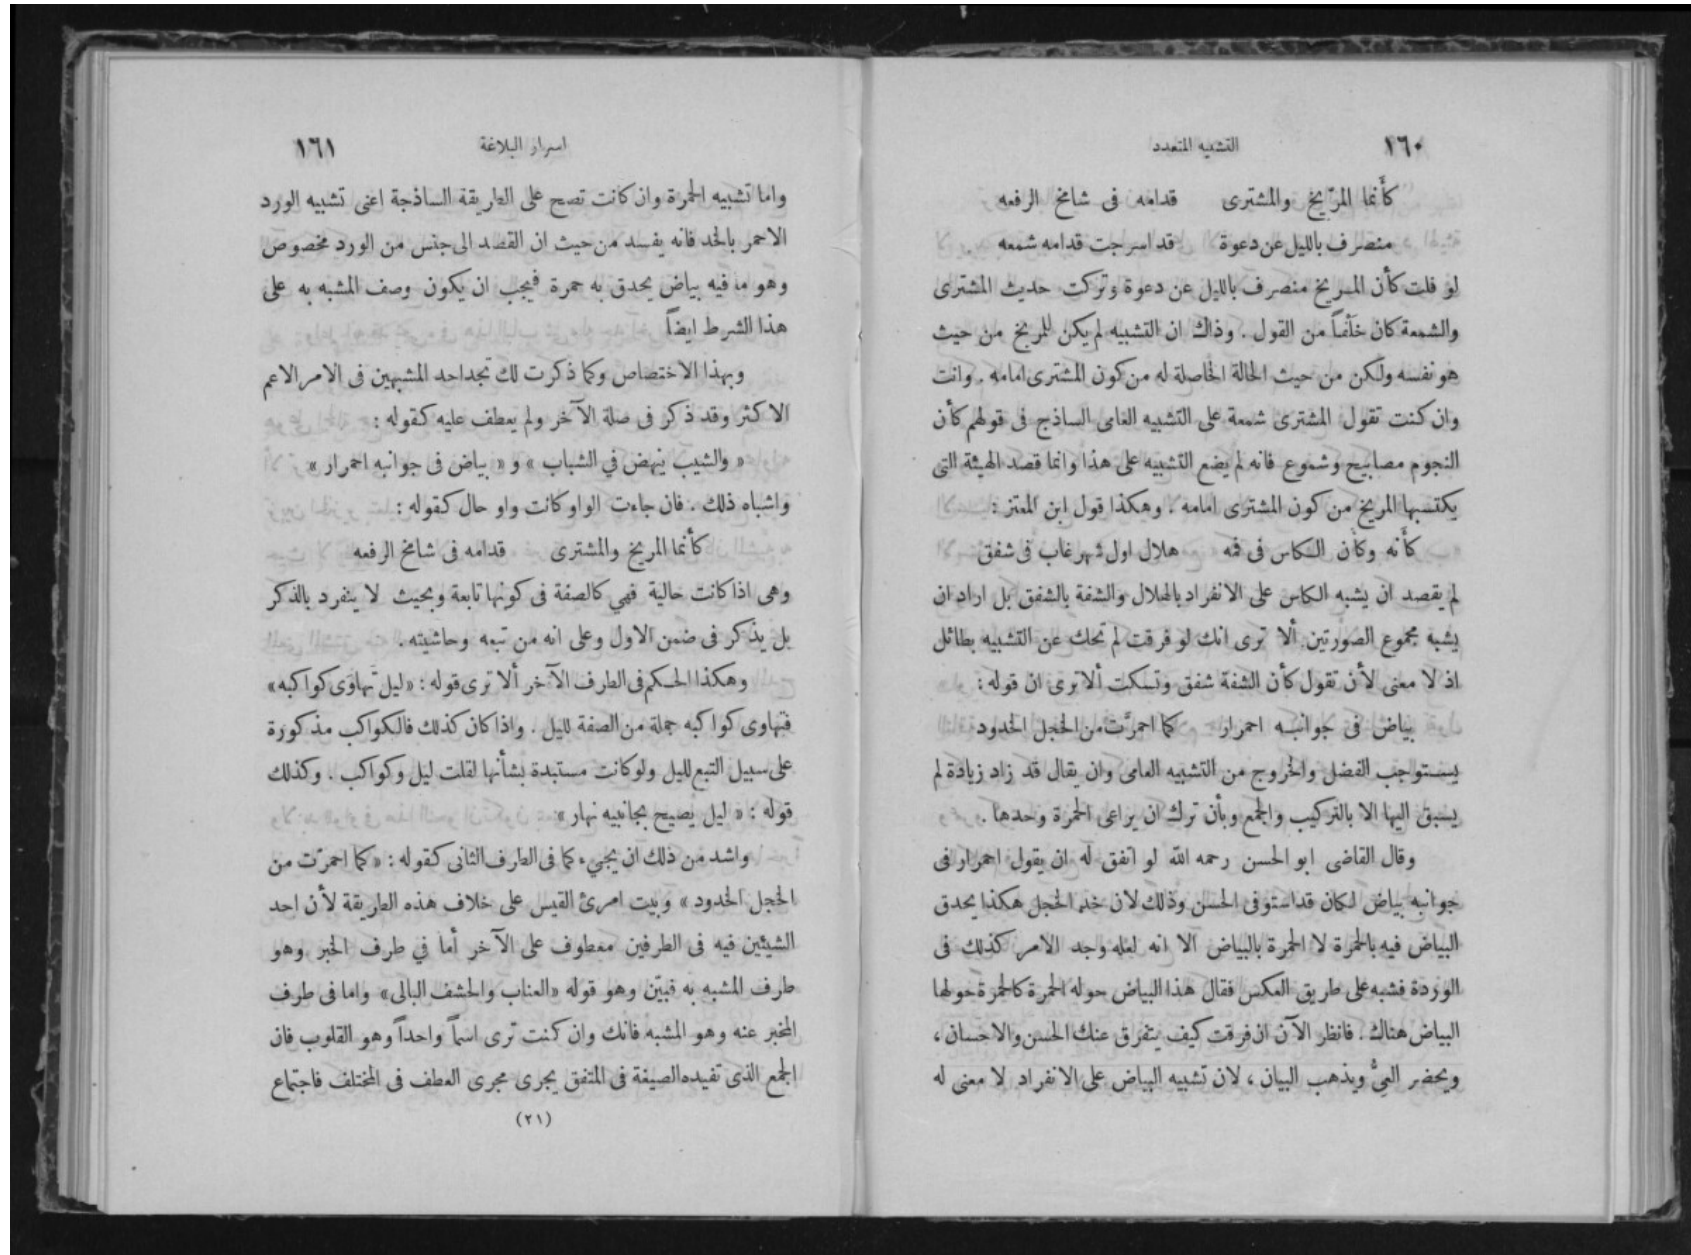 ١٦٠ التشبيه المتعدد
كأَنما المرّيخ والمشترى قدامه فى شامخ الرفعه
منصرف بالليل عن دعوة قد اسرجت قدامه شمعه
لو قلت كأن المريخ منصرف بالليل عن دعوة وتركت حديث المشترى
والشمعة كان خلفاً من القول . وذاك ان التشبيه لم يكن للمريخ من حيث
هو نفسه ولكن من حيث الحالة الحاصلة له من كون المشترى امامه . وانت
وان كنت تقول المشترى شمعة على التشبيه العامى الساذج فى قولهم كأن
النجوم مصابيح وشموع فانه لم يضع التشبيه على هذا وانما قصد الهيئة التى
يكتسبها المريخ من كون المشترى امامه . وهكذا قول ابن المعتز :
كأَنه وكأن الكاس فى فمه هلال اول شهر غاب فى شفق
لم يقصد ان يشبه الكاس على الانفراد بالهلال والشفة بالشفق بل اراد ان
يشبه مجموع الصورتين. ألا ترى انك لو فرقت لم تحك عن التشبيه بطائل
اذ لا معنى لأن تقول كأن الشفة شفق وتسكت ألا ترى ان قوله :
بياض فى جوانبه احمرار كما احمرَّت من الخجل الخدود
يستوجب الفضل والخروج من التشبيه العامى وان يقال قد زاد زيادة لم
يسبق اليها الا بالتركيب والجمع وبأن ترك ان يراعى الحمرة وحدها .
وقال القاضى ابو الحسن رحمه الله لو اتفق له ان يقول احمرار فى
جوانبه بياض لكان قد استوفى الحسن وذلك لان خد الخجل هكذا يحدق
البياض فيه بالحمرة لا الحمرة بالبياض الا انه لعله وجد الامر كذلك فى
الوردة فشبه على طريق العكس فقال هذا البياض حوله الحمرة كالحمرة حولها
البياض هناك . فانظر الآن ان فرقت كيف يتفرق عنك الحسن والاحسان ،
ويحضر العيُّ ويذهب البيان ، لان تشبيه البياض على الانفراد لا معنى له
اسرار البلاغة ١٦١
واما تشبيه الحمرة وان كانت تصح على الطريقة الساذجة اعنى تشبيه الورد
الاحمر بالخد فانه يفسد من حيث ان القصد الى جنس من الورد مخصوص
وهو ما فيه بياض يحدق به حمرة فيجب ان يكون وصف المشبه به على
هذا الشرط ايضاً
وبهذا الاختصاص وكما ذكرت لك تجد احد المشبهين فى الامر الاعم
الاكثر وقد ذكر فى صلة الآخر ولم يعطف عليه كقوله :
« والشيب ينهض في الشباب » و « بياض فى جوانبه احمرار »
واشباه ذلك . فان جاءت الواو كانت واو حال كقوله :
كأنما المريخ والمشترى قدامه فى شامخ الرفعه
وهى اذا كانت حالية فهي كالصفة فى كونها تابعة وبحيث لا ينفرد بالذكر
بل يذكر فى ضمن الاول وعلى انه من تبعه وحاشيته .
وهكذا الحكم فى الطرف الآخر ألا ترى قوله : «ليل تهاوى كواكبه»
فتهاوى كواكبه جملة من الصفة لليل . واذا كان كذلك فالكواكب مذكورة
على سبيل التبع لليل ولو كانت مستبدة بشأنها لقلت ليل وكواكب . وكذلك
قوله : « ليل يصيح بجانبيه نهار »
واشد من ذلك ان يجيء كما فى الطرف الثانى كقوله : «كما احمرّت من
الخجل الخدود » وبيت امرئ القيس على خلاف هذه الطريقة لأن احد
الشيئين فيه فى الطرفين معطوف على الآخر أما في طرف الخبر وهو
طرف المشبه به فبيّن وهو قوله «العناب والحشف البالى» واما فى طرف
المخبر عنه وهو المشبه فانك وان كنت ترى اسماً واحداً وهو القلوب فان
الجمع الذى تفيده الصيغة فى المتفق يجرى مجرى العطف فى المختلف فاجتماع
(٢١)